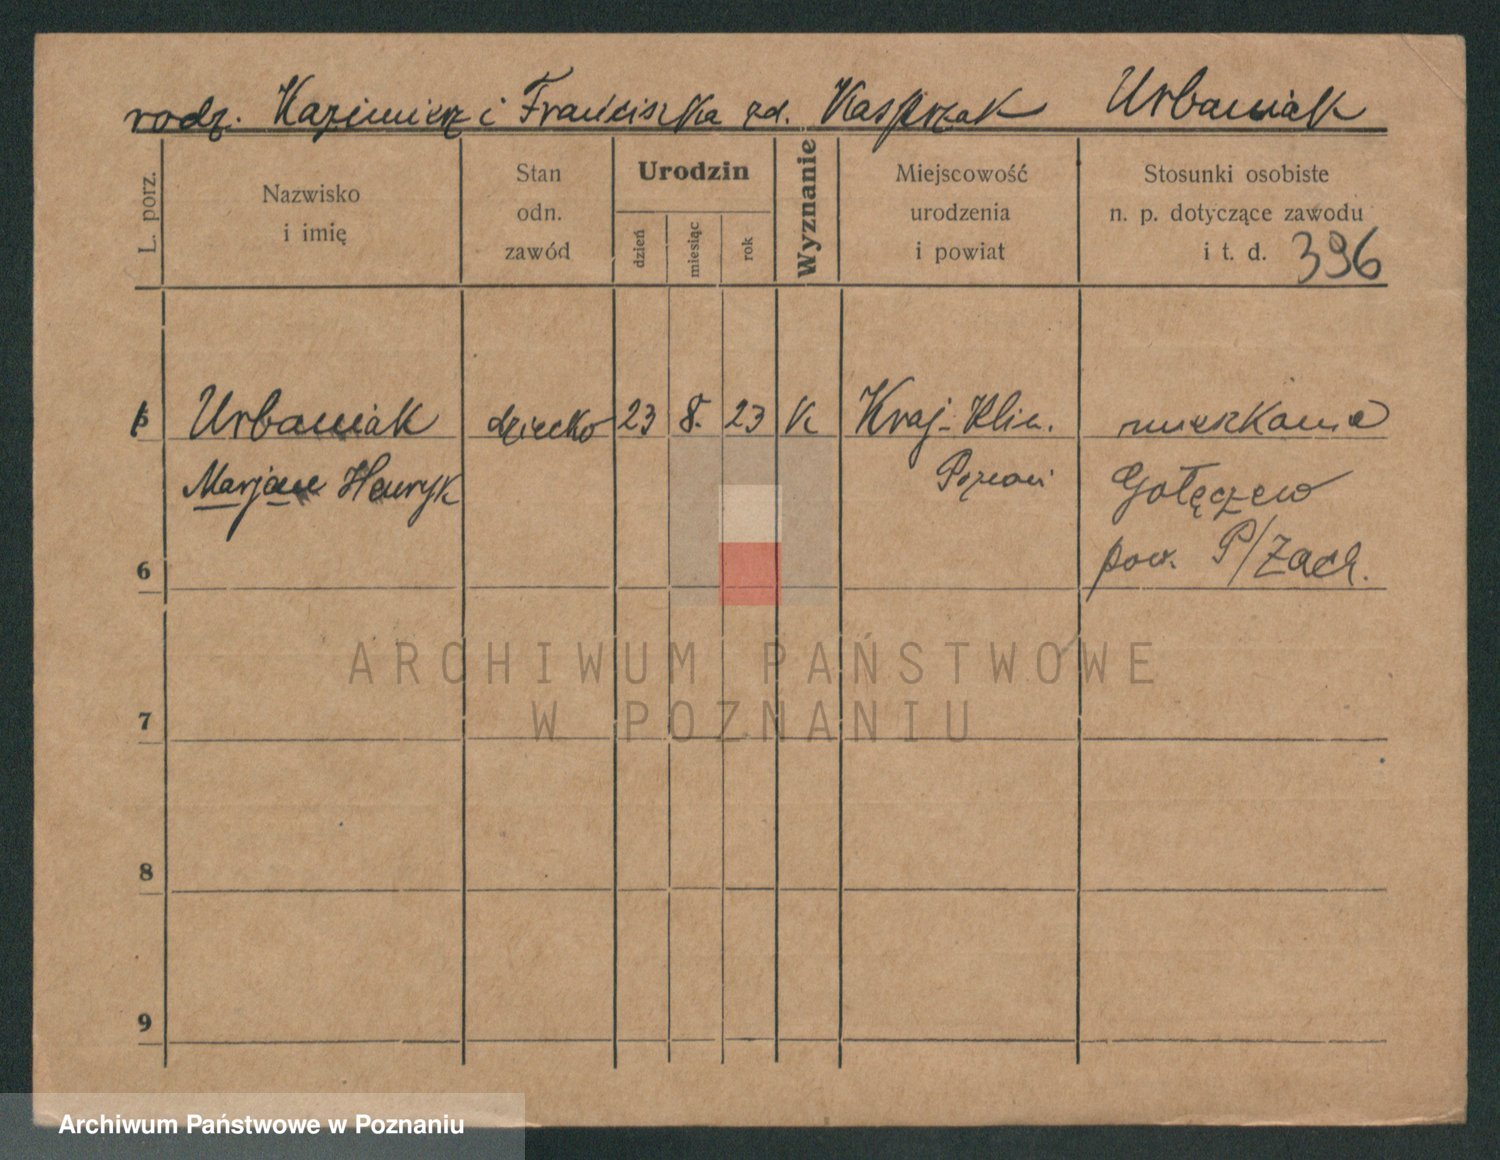 rodz. Kazimierz i Franciszka zd. Kasprzak Urbaniak
L. porz.
Nazwisko
i imię
Stan
odn.
zawód
Urodzin
dzień
miesiąc
rok
Wyznanie
Miejscowość
urodzenia
i powiat
Stosunki osobiste
n. p. dotyczące zawodu
i t. d. 396
Urbaniak dziecko 23 8. 23 K Kraj. Klin. mieszkanie
Marjan Henryk Poznań Gołęczewo
6 pow. P/Zach.
ARCHIWUM PAŃSTWOWE
W POZNANIU
7
8
9
Archiwum Państwowe w Poznaniu